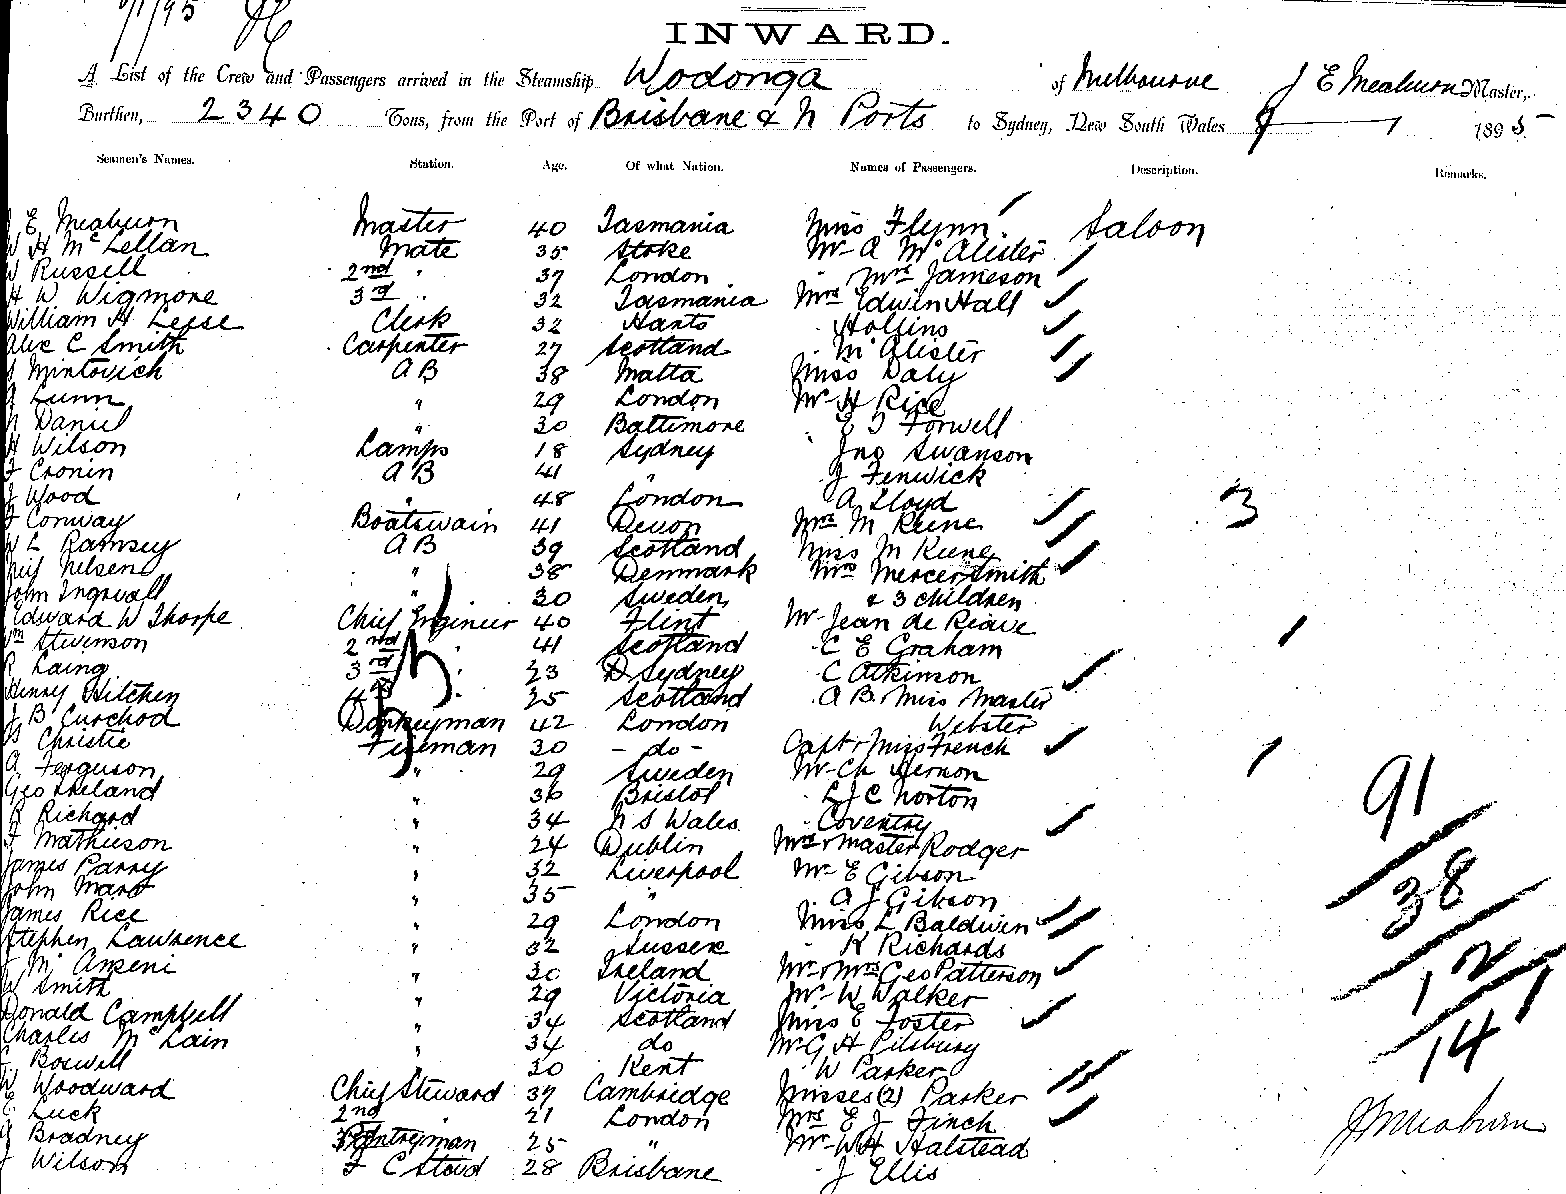 9/1/95
INWARD.
A List of the Crew and Passengers arrived in the Steamship Wodonga of Melbourne J E Meaburn Master,
Burthen, 2340 Tons, from the Port of Brisbane & N Ports to Sydney, New South Wales 1895
Seamen's Names. Station. Age. Of what Nation. Names of Passengers. Description. Remarks.
J E Meaburn Master 40 Tasmania Miss Flynn Saloon
W H McLellan Mate 35 Stoke Mr A McAlister
W Russell 2nd " 37 London Mrs Jameson
H W Wigmore 3rd " 32 Tasmania Mrs Edwin Hall
William H Leese Clerk 32 Hants " Hollins
Alex C Smith Carpenter 27 Scotland " McAlister
Mintovich A B 38 Malta Miss Daly
Lunn " 29 London Mr H Rice
N Daniel " 30 Baltimore E T Forwell
H Wilson Lamps 18 Sydney Jno Swanson
F Cronin A B 41 " J Fenwick
J Wood " 48 London A Lloyd 3
F Conway Boatswain 41 Devon Mrs M Keene
W L Ramsey A B 39 Scotland Miss M Keene
Neil Nelsen " 38 Denmark Mrs Mercer Smith
John Ingvall " 30 Sweden & 3 children
Edward W Thorpe Chief Engineer 40 Flint Mr Jean de Reave
Wm Stevenson 2nd " 41 Scotland C E Graham
R Laing 3rd " 23 Sydney C Atkinson
Henry Hitchen 4th " 25 Scotland A B. Miss Master
J B Curchod Donkeyman 42 London Webster
Christie Fireman 30 - do - Capt & Miss French
A Ferguson " 29 Sweden Mr Ch Hernon
Geo Ireland " 36 Bristol L J C Norton 91
R Richard " 34 N S Wales Coventry
F Mathieson " 24 Dublin Mrs & Master Rodger
James Parry " 32 Liverpool Mr E Gibson 38
John Maro " 35 " A J Gibson
James Rice " 29 London Miss L Baldwin
Stephen Lawrence " 32 Sussex K Richards
J McArseni " 30 Ireland Mr & Mrs Geo Patterson 12
W Smith " 29 Victoria Mr W Walker 1
Donald Campbell " 34 Scotland Miss E Foster
Charles McLain " 34 do Mr G H Pilsbury 14
Boswell " 30 Kent W Parker
W Woodward Chief Steward 37 Cambridge Misses (2) Parker
E Luck 2nd " 21 London Mrs E J Finch J E Meaburn
Bradney Pantryman 25 " Mr W H Halstead
J Wilson F C Stewd 28 Brisbane J Ellis